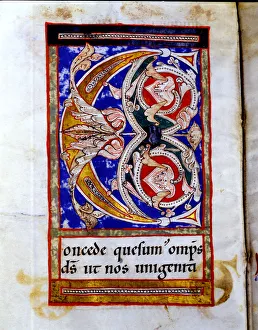 oncede quesum' omp̄s
d̄s ut nos unigeniti